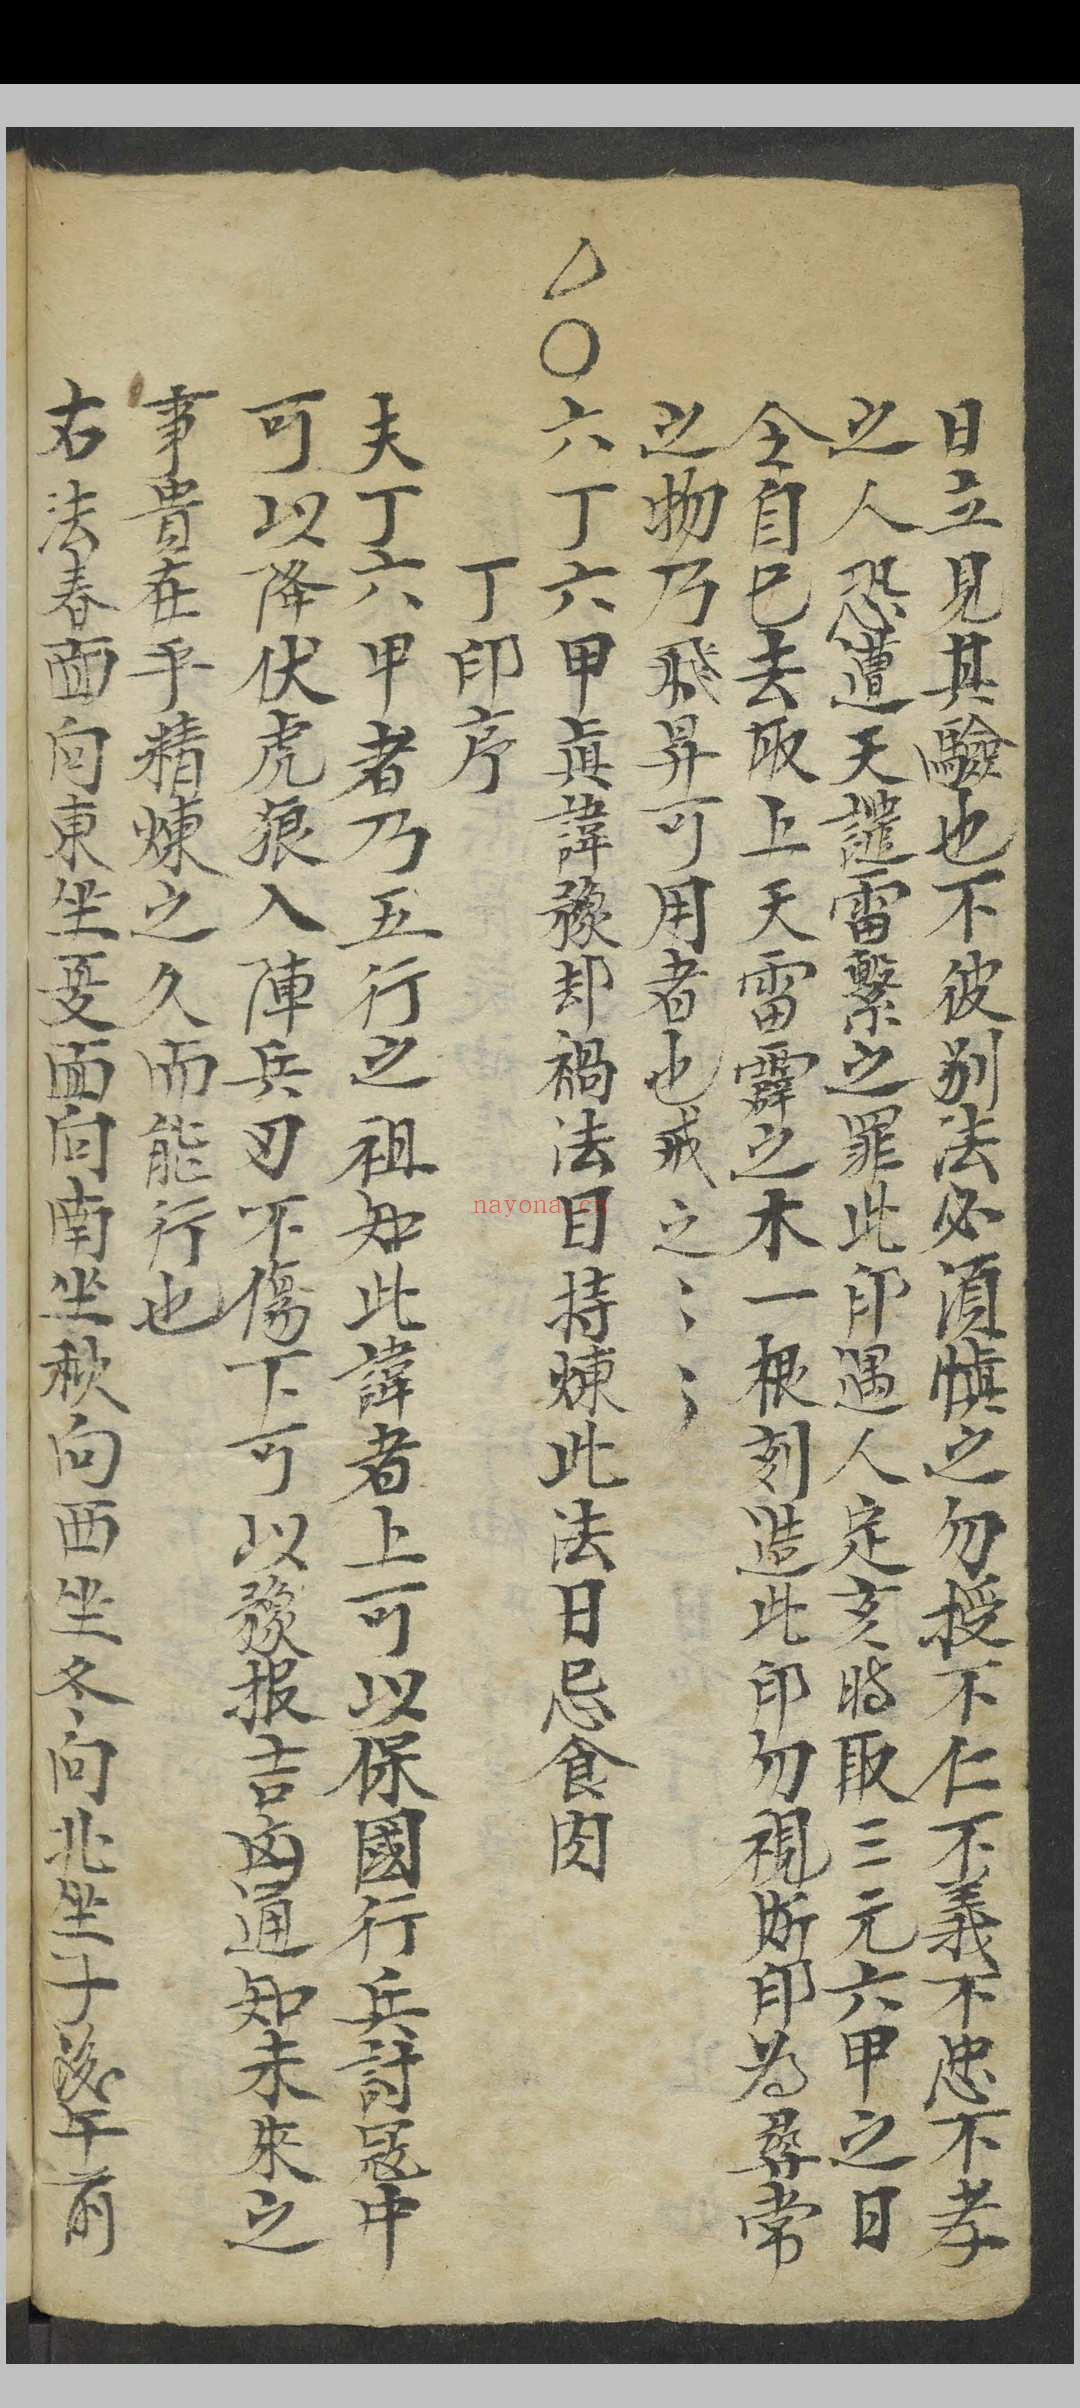 日立見其驗也不彼别法必須慎之勿授不仁不義不忠不孝
之人恐遭天譴雷繫之罪此印遇人定亥時取三元六甲之日
仝自巳去取上天雷霹之木一根刻造此印勿視斯印為尋常
之物乃飛昇可用者也戒之〻〻
△〇六丁六甲真諱豫却禍法日持煉此法日忌食肉
丁印序
夫丁六甲者乃五行之祖知此諱者上可以保國行兵討冦中
可以降伏虎狼入陣兵刃不傷下可以豫报吉凶通知未來之
事貴在乎精煉之久而能行也
右法春面向東坐夏面向南坐秋向西坐冬向北坐子後午前
nayona.cn